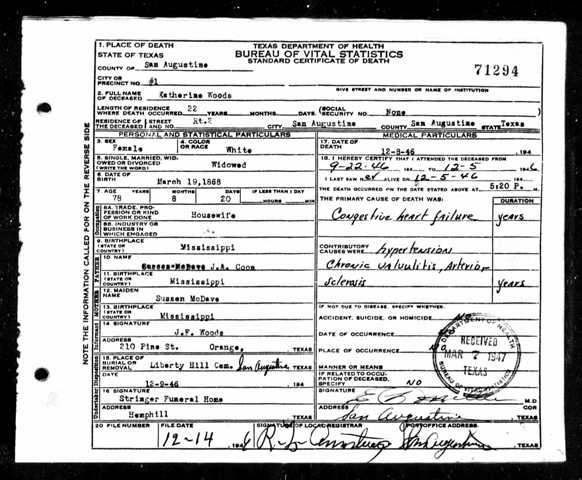 1. PLACE OF DEATH
STATE OF TEXAS
COUNTY OF San Augustine
TEXAS DEPARTMENT OF HEALTH
BUREAU OF VITAL STATISTICS
STANDARD CERTIFICATE OF DEATH
71294
CITY OR
PRECINCT NO. #1
GIVE STREET AND NUMBER OR NAME OF INSTITUTION
2. FULL NAME
OF DECEASED Katherine Woods
LENGTH OF RESIDENCE
WHERE DEATH OCCURRED 22 YEARS MONTHS DAYS
(SOCIAL
SECURITY NO. None
RESIDENCE OF STREET
THE DECEASED AND NO. Rt.2 CITY San Augustine COUNTY San Augustine STATE Texas
PERSONAL AND STATISTICAL PARTICULARS
3. SEX
Female
4. COLOR
OR RACE White
5. SINGLE, MARRIED, WID-
OWED OR DIVORCED
(WRITE THE WORD) Widowed
6. DATE OF
BIRTH March 19,1868
7. AGE YEARS MONTHS DAYS IF LESS THAN 1 DAY
78 8 20 HOURS MIN
8A. TRADE, PROFES-
SION OR KIND
OF WORK DONE Housewife
8B. INDUSTRY OR
BUSINESS IN
WHICH ENGAGED
9. BIRTHPLACE
(STATE OR
COUNTRY) Mississippi
10. NAME
J.A. Coon
11. BIRTHPLACE
(STATE OR
COUNTRY) Mississippi
12. MAIDEN
NAME Sussen McDave
13. BIRTHPLACE
(STATE OR
COUNTRY) Mississippi
14. SIGNATURE
J.F. Woods
ADDRESS
210 Pine St. Orange, TEXAS
15. PLACE OF
BURIAL OR
REMOVAL Liberty Hill Cem. San Augustine TEXAS
12-9-46 194
16 SIGNATURE
Stringer Funeral Home
ADDRESS
Hemphill TEXAS
MEDICAL PARTICULARS
17. DATE OF
DEATH 12-8-46 194
18. I HEREBY CERTIFY THAT I ATTENDED THE DECEASED FROM
9-22-46 194 TO 12-5 1946
I LAST SAW her ALIVE ON 12-5-46 194
THE DEATH OCCURRED ON THE DATE STATED ABOVE AT 5:20 P. M.
THE PRIMARY CAUSE OF DEATH WAS: DURATION
Congestive heart failure years
CONTRIBUTORY
CAUSES WERE: hypertension
Chronic valvulitis, Arterio-
sclerosis years
IF NOT DUE TO DISEASE, SPECIFY WHETHER:
ACCIDENT, SUICIDE, OR HOMICIDE
DATE OF OCCURRENCE
PLACE OF OCCURRENCE
MANNER OR MEANS
IF RELATED TO OCCU-
PATION OF DECEASED,
SPECIFY NO
SIGNATURE
M.D
ADDRESS COR
San Augustine TEXAS
DEPARTMENT OF HEALTH
RECEIVED
MAR 7 1947
TEXAS
BUREAU OF VITAL STATISTICS
20 FILE NUMBER FILE DATE SIGNATURE OF LOCAL REGISTRAR POSTOFFICE ADDRESS
12-14 1946 San Augustine TEXAS
NOTE THE INFORMATION CALLED FOR ON THE REVERSE SIDE
Occupation
FATHER
MOTHER
Informant
Undertaker Disposition